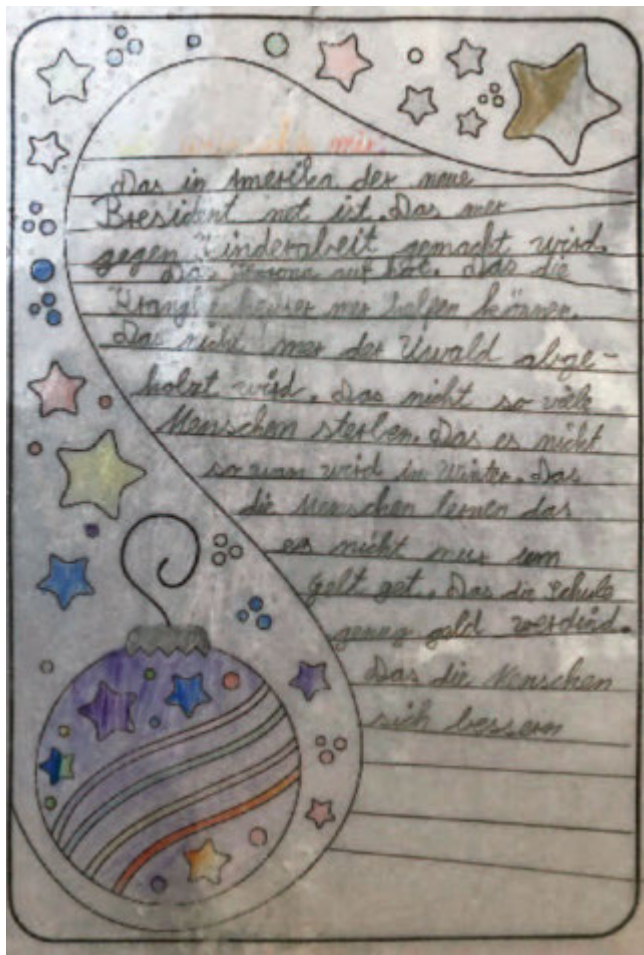 mir.
Das in Amerika der neue
Bresident net ist. Das mer
gegen Kinderabeit gemacht wird.
Das Korona auf höt. Das die
Kranglenheuser mer helfen können.
Das nicht mer der Uwald abge-
holzt wird. Das nicht so viele
Menschen sterben. Das es nicht
so wan wird in Winter. Das
die Menschen lernen das
es nicht nur um
gelt get. Das die schule
genug geld verdind.
Das die Menschen
sich bessern